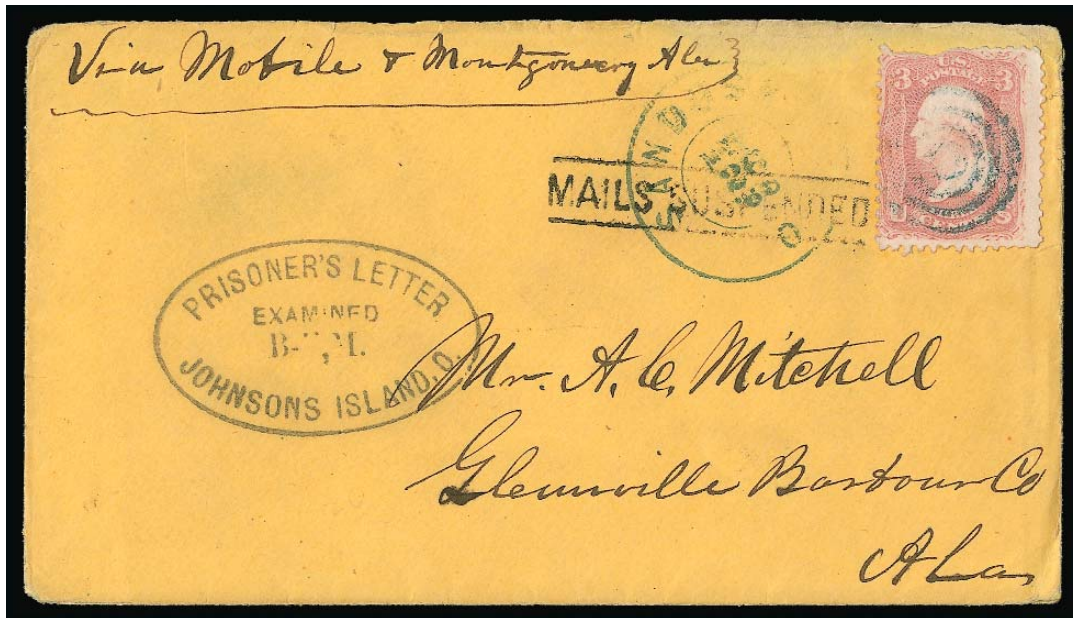 Via Mobile & Montgomery Ala
U.S.
3 POSTAGE 3
SANDUSKY O
MAILS SUSPENDED
PRISONER'S LETTER
EXAMINED
JOHNSONS ISLAND, O.
Mr. A. C. Mitchell
Glennville Barbour Co
Ala